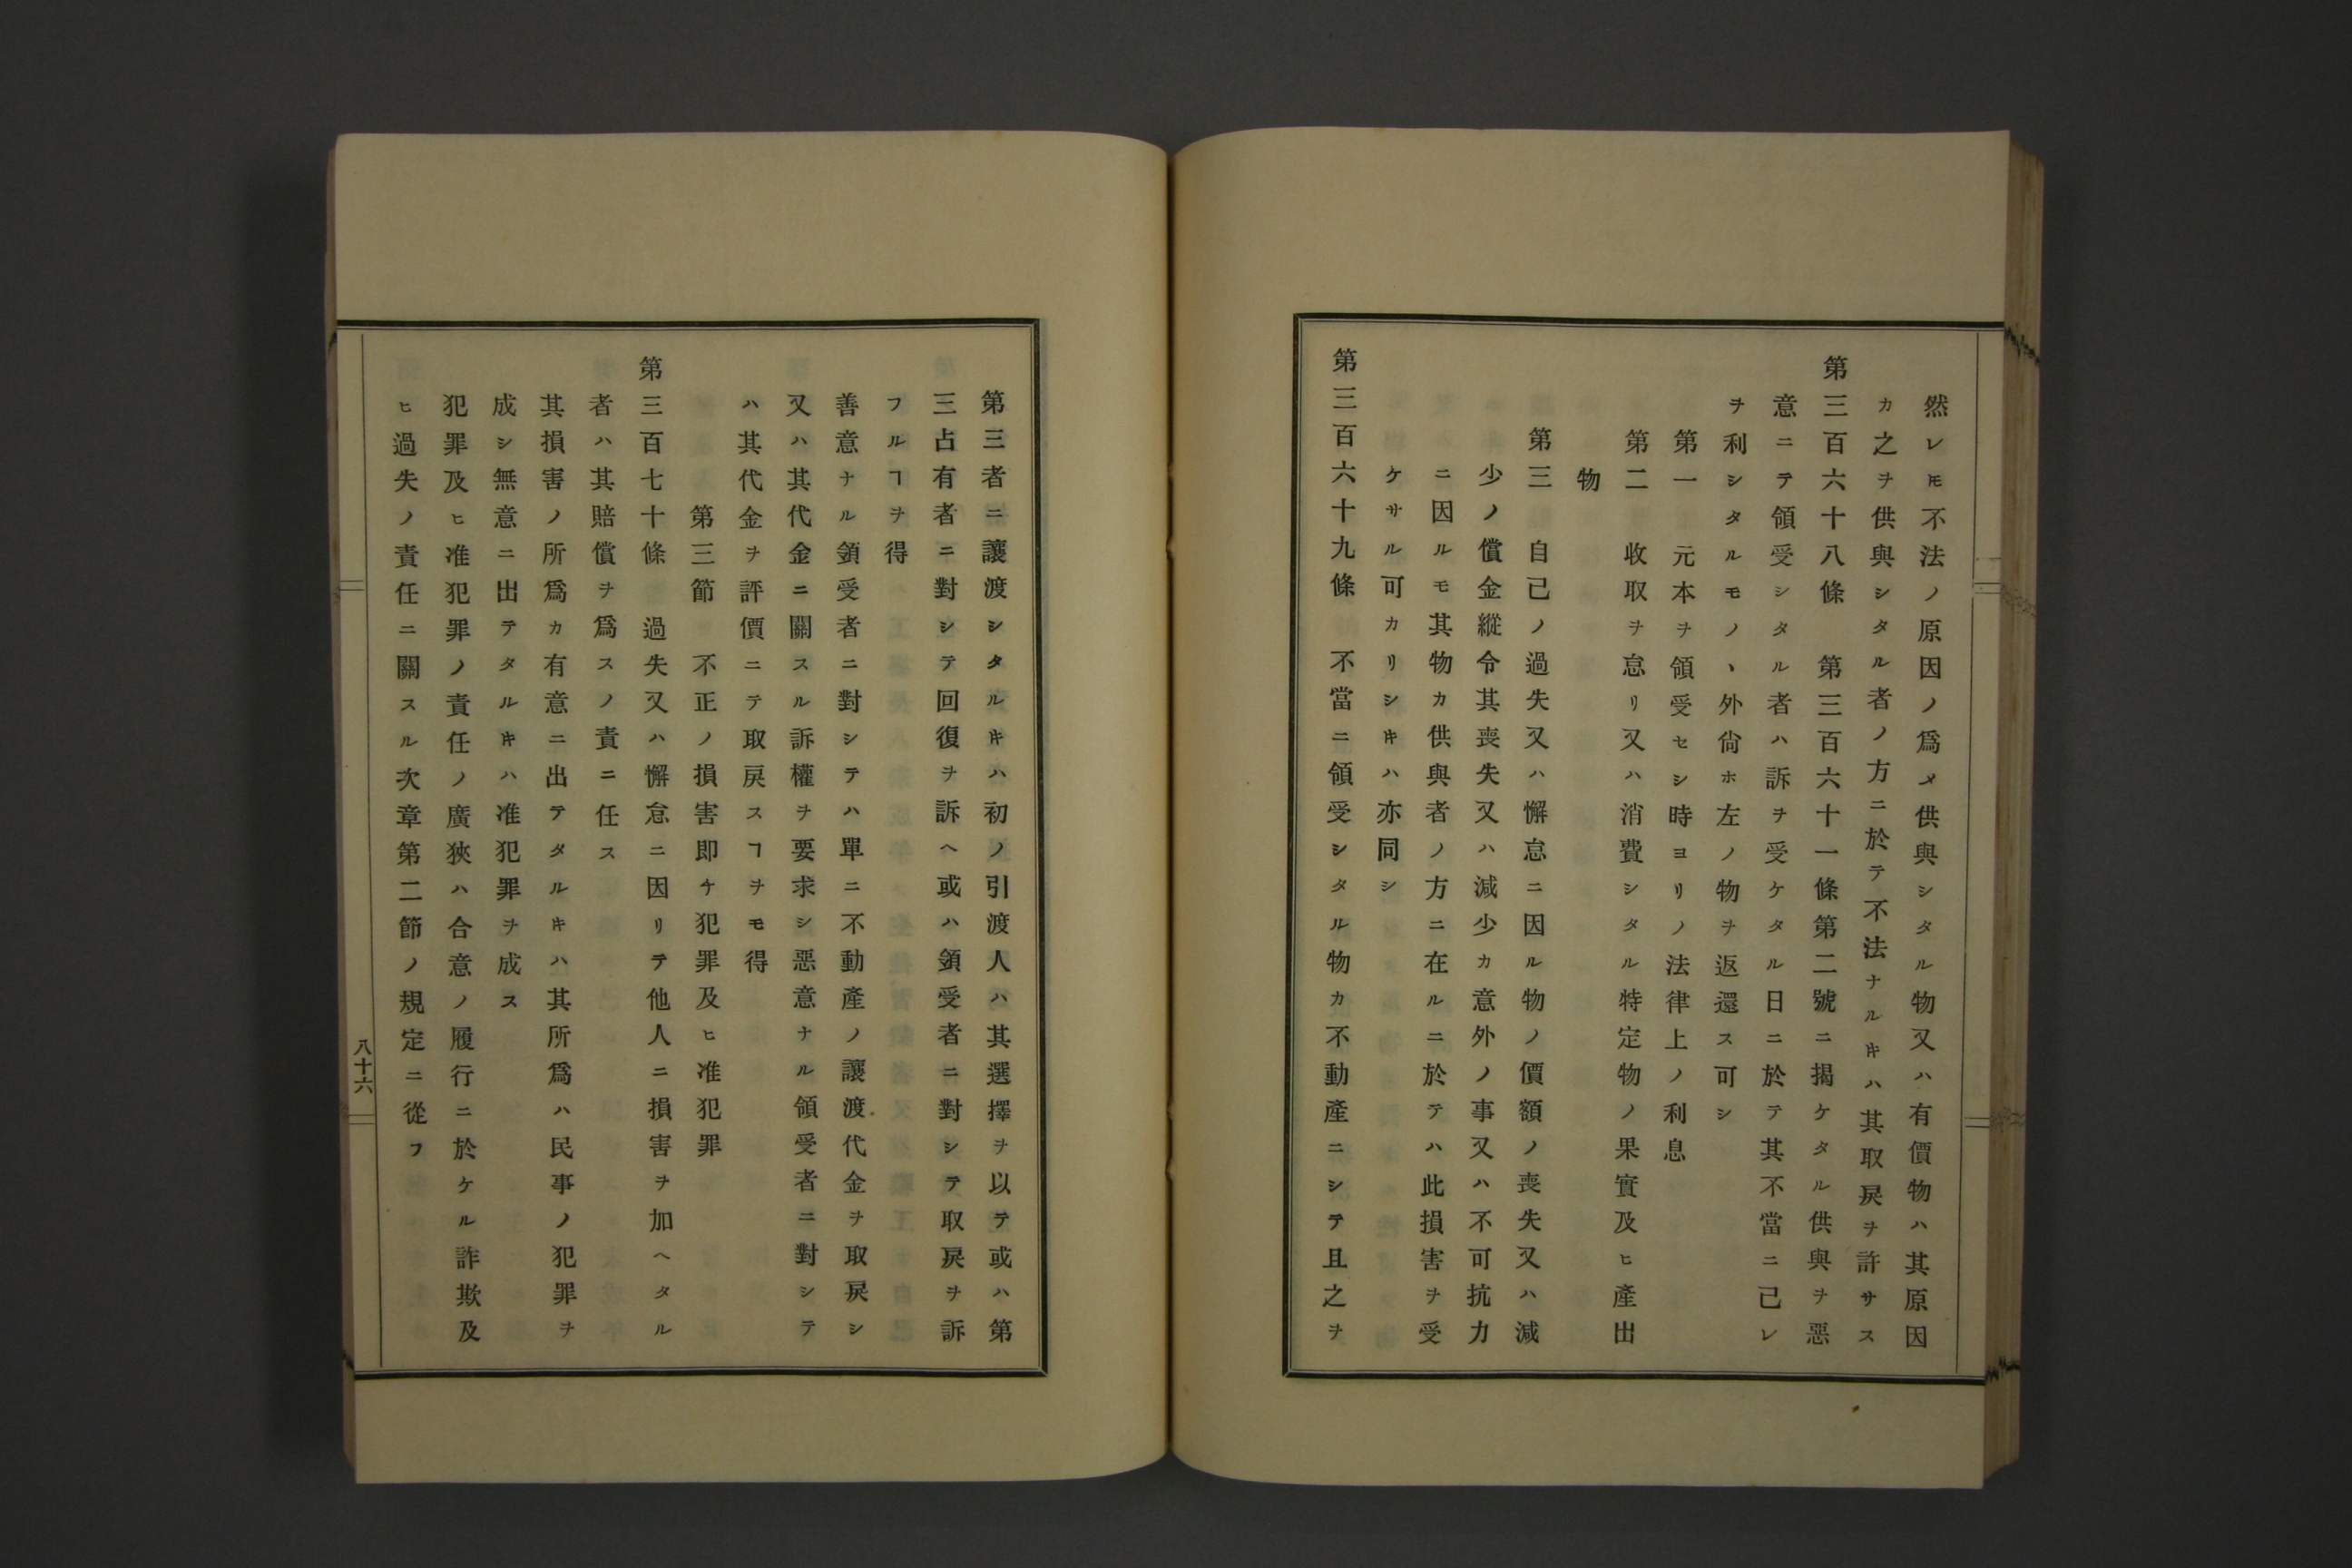 然レㇳモ不法ノ原因ノ爲メ供與シタル物又ハ有價物ハ其原因
カ之ヲ供與シタル者ノ方ニ於テ不法ナルキハ其取戾ヲ許サス
第三百六十八條　第三百六十一條第二號ニ揭ケタル供與ヲ惡
意ニテ領受シタル者ハ訴ヲ受ケタル日ニ於テ其不當ニ己レ
ヲ利シタルモノヽ外尙ホ左ノ物ヲ返還ス可シ
第一　元本ヲ領受セシ時ヨリノ法律上ノ利息
第二　收取ヲ怠リ又ハ消費シタル特定物ノ果實及ヒ產出
物
第三　自己ノ過失又ハ懈怠ニ因ル物ノ價額ノ喪失又ハ減
少ノ償金縱令其喪失又ハ減少カ意外ノ事又ハ不可抗力
ニ因ルモ其物カ供與者ノ方ニ在ルニ於テハ此損害ヲ受
ケサル可カリシキハ亦同シ
第三百六十九條　不當ニ領受シタル物カ不動產ニシテ且之ヲ
第三者ニ讓渡シタルキハ初ノ引渡人ハ其選擇ヲ以テ或ハ第
三占有者ニ對シテ回復ヲ訴ヘ或ハ領受者ニ對シテ取戾ヲ訴
フルヿヲ得
善意ナル領受者ニ對シテハ單ニ不動產ノ讓渡代金ヲ取戾シ
又ハ其代金ニ關スル訴權ヲ要求シ惡意ナル領受者ニ對シテ
ハ其代金ヲ評價ニテ取戾スヿヲモ得
第三節　不正ノ損害即チ犯罪及ヒ准犯罪
第三百七十條　過失又ハ懈怠ニ因リテ他人ニ損害ヲ加ヘタル
者ハ其賠償ヲ爲スノ責ニ任ス
其損害ノ所爲カ有意ニ出テタルキハ其所爲ハ民事ノ犯罪ヲ
成シ無意ニ出テタルキハ准犯罪ヲ成ス
犯罪及ヒ准犯罪ノ責任ノ廣狹ハ合意ノ履行ニ於ケル詐欺及
ヒ過失ノ責任ニ關スル次章第二節ノ規定ニ從フ
八十六